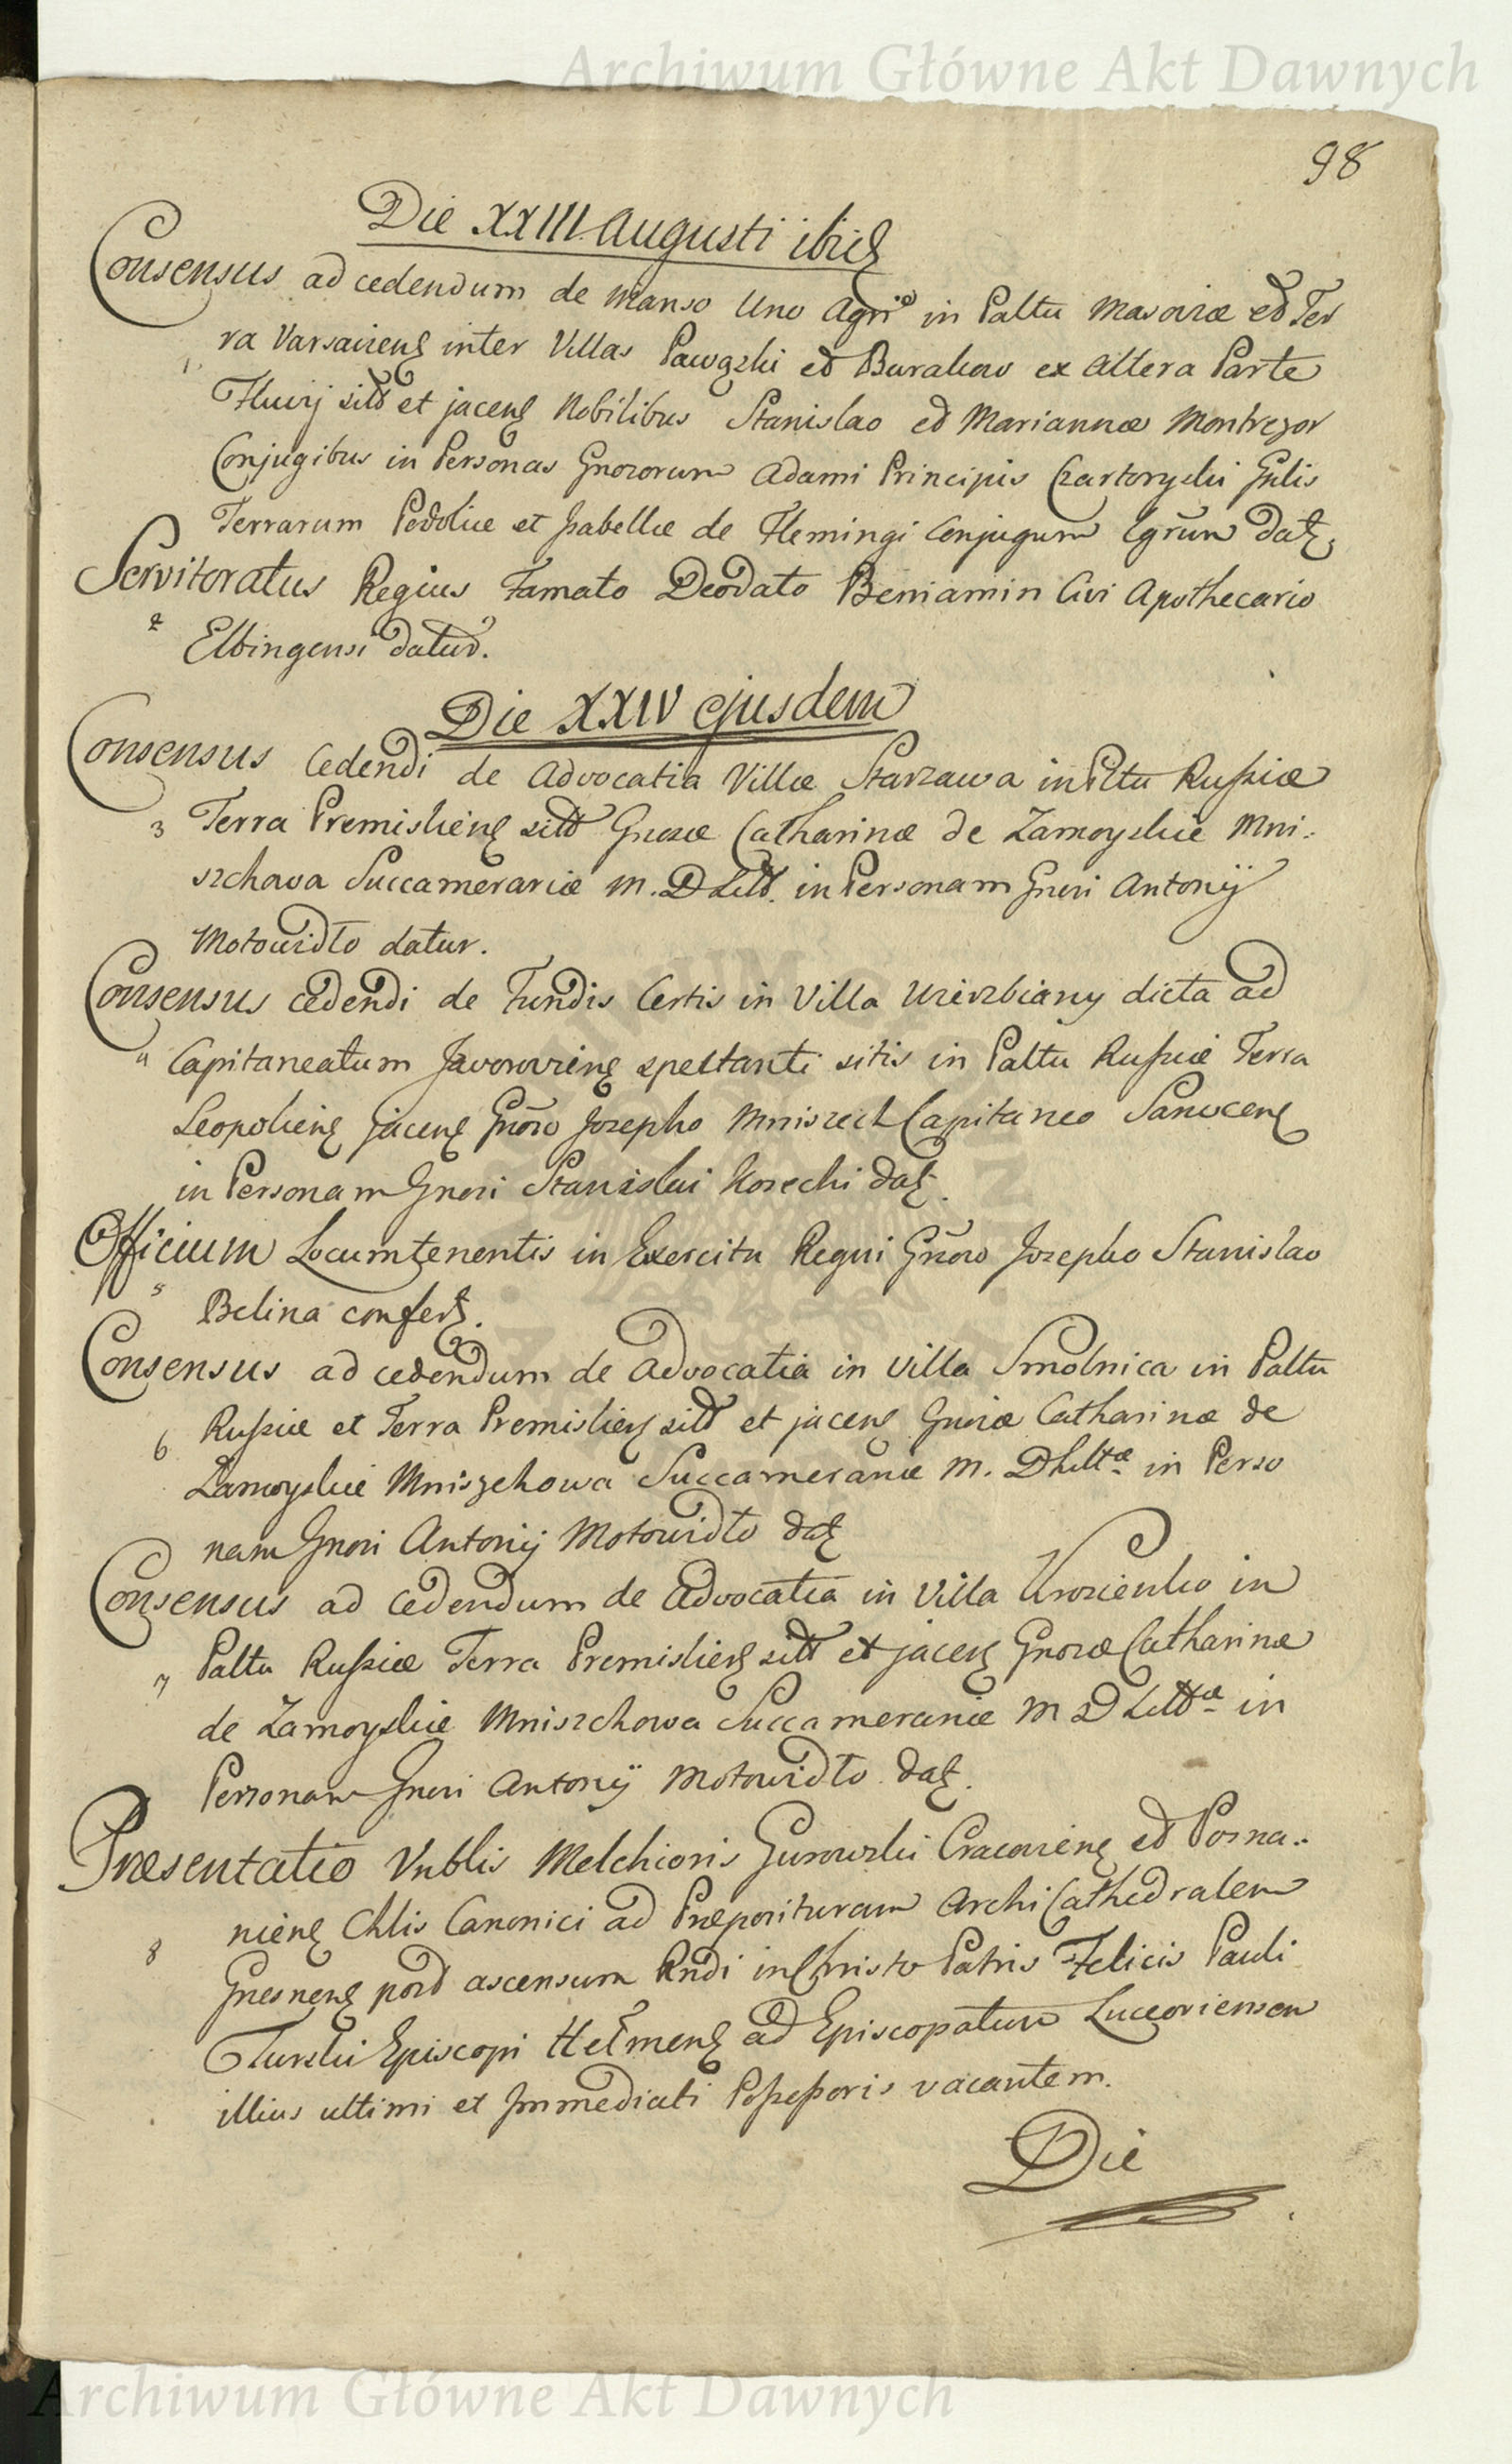 Archiwum Główne Akt Dawnych
98
Die XXIII Augusti ibid
Consensus ad cedendum de manso Uno Agri in Paltu Masoviæ et Ter
1. ra Varsavien inter Villas Pawązki et Burakow ex Altera Parte
Fluvij sitt et jacen Nobilibus Stanislao et Mariannæ Montrezor
Conjugibus in Personas Gnororum Adami Principis Czartoryski Gnlis
Terrarum Podoliæ et Isabellæ de Flemingi Conjugum dat.
Servitoratus Regius Famato Deodato Beniamin Civi Apothecario
2 Elbingensi datur.
Die XXIV ejusdem
Consensus Cedendi de Advocatia Villæ Starzawa in Pltu Russiæ
3 Terra Premislien sitt Gnosæ Catharinæ de Zamoyskie Mni-
szchowa Succamerariæ M. D Litt. in Personam Gnori Antonij
Motowidło datur.
Consensus cedendi de Fundis Certis in Villa Wierzbiany dicta ad
4 Capitaneatum Javorovien spectanti sitis in Paltu Russiæ Terra
Leopolien jacen Gnoro Josepho Mniszech Capitaneo Sanocen
in Personam Gnori Stanislai Kosecki dat.
Officium Locumtenentis in Exercitu Regni Gnoro Josepho Stanislao
5 Belina confert.
Consensus ad cedendum de Advocatia in Villa Smolnica in Paltu
6 Russiæ et Terra Premislien sitt et jacen Gnoræ Catharinæ de
Zamoyskie Mniszchowa Succamerariæ M. D Littæ in Perso
nam Gnori Antonij Motowidło dat
Consensus ad cedendum de Advocatia in Villa Krozienko in
7 Paltu Russiæ Terra Premislien sitt et jacen Gnoræ Catharinæ
de Zamoyskie Mniszchowa Succamerariæ M D Littæ in
Personam Gnori Antonij Motowidło dat.
Præsentatio Vnblis Melchioris Gurowski Cracovien et Posna-
8 nien Chlis Canonici ad Præposituram Archi Cathedralem
Gnesnen post ascensum Rndi in Christo Patris Felicis Pauli
Turski Episcopi Helmen ad Episcopatum Luceoriensem
illius ultimi et Immediati Possessoris vacantem.
Die
Archiwum Główne Akt Dawnych